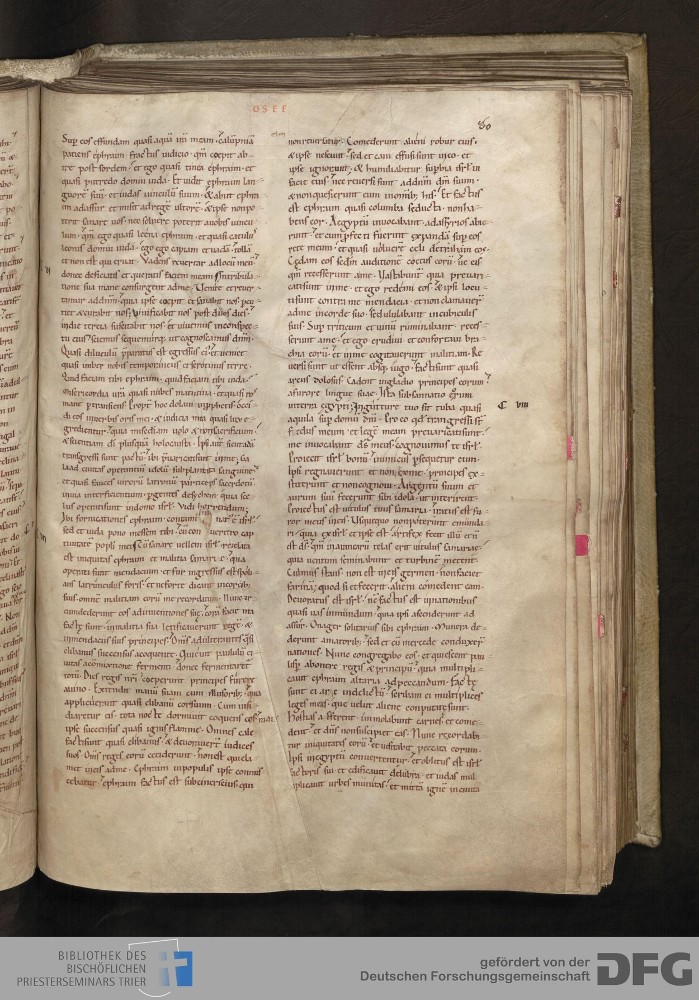 OSEE
60
Sup eos effundam quasi aquā irā meam. calūpniā
patiens ephraim fractus iudicio. qm̄ coepit ab
ire post sordem. et ego quasi tinea ephraim. et
quasi putredo domui iuda. Et uidit ephraim lan
guorē suū. et iudas uinculū suum. & abiit ephra
im ad assur et misit ad regē ultorē. & ipse non po
terit sanare uos. nec soluere poterit a uobis uincu
lum. qm̄ ego quasi leena ephraim. et quasi catulus
leonis domui iuda. ego ego capiam et uadā. tollā
et non est qui eruat. Vadens reuertar ad locū meū
donec deficiatis et queratis faciem meam. In tribula
tione sua mane consurgent ad me. Venite et reuer
tamur ad dnm̄. quia ipse coepit et sanabit nos. percu
tiet & curabit nos. Viuificabit nos post duos dies.
in die tercia suscitabit nos. et uiuemus in conspec
tu eius. sciemus sequemurq. ut cognoscamus dnm̄.
Quasi diluculū preparatus est egressus ei. et ueniet
quasi imber nobis temporaneus et serotinus terre.
Quid faciam tibi ephraim. quid faciam tibi iuda.
misericordia urā quasi nubes matutina. et quasi ros
mane ptransiens. Propt hoc dolaui in pphetis occi
di eos in uerbis oris mei. & iudicia tua quasi lux e
gredientur. quia misericdiam uolui & non sacrificium.
& scientiam di plusquā holocausta. Ipsi aut sicut adā
transgressi sunt pactū. ibi puaricati sunt in me. Ga
laad ciuitas operantiū idolū. subplantata sanguine
et quasi fauces uirorū latronū. particeps sacerdotū.
in uia interficientium pgentes de sychem. quia sce
lus operati sunt. In domo isrl. uidi horrendum.
ibi fornicationes ephraim. contaminatus ē isrl.
sed et iuda pone messem tibi. cū conuertero cap
tiuitatē popli mei. Cū sanare uellem isrl. reuelata
est iniquitas ephraim. et malitia samarie. quia
operati sunt mendacium. et fur ingressus est spoli
ans latrunculus foris. et ne forte dicant in cordib;
suis omnē malitiam eorū me recordatum. Nunc cir
cumdederunt eos adinuentiones sue. corā facie mea
facte sunt. in malitia sua letificauerunt regē. &
in mendaciis suis principes. Oms adulterantes qsi
clibanus succensus a coquente. Quieuit paululū ci
uitas a cōmixtione fermenti. donec fermentaret
totū. Dies regis nri. coeperunt principes furere
a uino. Extendit manū suam cum illusorib;. quia
applicuerunt quasi clibanū cor suum. Cum insi
diaretur eis. tota nocte dormiuit coquens eos mane
ipse succensus quasi ignis flamme. Omnes cale
facti sunt quasi clibanus. & deuorauerunt iudices
suos. Oms reges eorū ceciderunt. non est qui cla
met in eis ad me. Ephraim in populis ipse commis
cebatur. ephraim factus est subcinericius qui
non reuersatur. Comederunt alieni robur eius.
& ipse nesciuit. sed et cani effusi sunt in eo. et
ipse ignorauit. & humiliabitur supbia isrl in
facie eius. nec reuersi sunt ad dnm̄ dm̄ suum.
& non quesierunt eum in omnib; his. Et factus
est ephraim quasi columba seducta. non ha
bens cor. Aegyptū inuocabant. ad assyrios abie
runt. et cum pfecti fuerint. expandā sup eos
rete meum. et quasi uolucrē celi detraham eos.
Cedam eos sedm̄ auditionē coetus eorū. ue eis
qm̄ recesserunt a me. Vastabunt quia preuari
cati sunt in me. et ego redemi eos. & ipsi locu
ti sunt contra me mendacia. et non clamauer
ad me in corde suo. sed ululabant in cubiculis
suis. Sup triticum et uinū ruminabant. reces
serunt a me. et ego erudiui et confortaui bra
chia eorū. et in me cogitauerunt malitiam. Re
uersi sunt ut essent absq. iugo. facti sunt quasi
arcus dolosus. Cadent in gladio principes eorum
a furore lingue sue. Ista subsannatio eorum
in terra egypti. In gutture tuo sit tuba quasi
C VIII
aquila sup domū dni. pro eo qd transgressi st
fedus meum. et legē meam preuaricati sunt.
me inuocabunt. ds meus. cognouimus te isrl.
Proiecit isrl bonū. inimicus psequetur eum.
Ipsi regnauerunt et non ex me. principes ex
titerunt et non cognoui. Argentū suum et
aurum suū fecerunt sibi idola. ut interirent.
Proiectus est uitulus tuus samaria. iratus est fu
ror meus in eos. Usquequo non poterunt emunda
ri. quia ex isrl et ipse est. artifex fecit illū et n̄
est ds. qm̄ in aranearū telas erit uitulus samarie.
quia uentum seminabunt. et turbinē metent.
Culmus stans non est in eis. germen non faciet
farinā. quod si et fecerit. alieni comedent eam.
Deuoratus est isrl. nc factus est in nationibus
quasi uas inmundum. quia ipsi ascenderunt ad
assur. Onager solitarius sibi ephraim. Munera de
derunt amatorib;. sed et cū mercede conduxer
nationes. Nunc congregabo eos. et quiescent pau
lisp ab onere regis & principū. quia multipli
cauit ephraim altaria ad peccandum. Facte
sunt ei are in delictū. scribam ei multiplices
leges meas. que uelut aliene computate sunt.
Hostias afferent. immolabunt carnes et come
dent. et dns̄ non suscipiet eas. Nunc recordabi
tur iniquitatis eorū. et uisitabit peccata eorum.
Ipsi in egyptū conuertentur. et oblitus est isrl
factoris sui. et edificauit delubra. et iudas mul
tiplicauit urbes munitas. et mittā ignē in ciuita
BIBLIOTHEK DES
BISCHÖFLICHEN
PRIESTERSEMINARS TRIER
gefördert von der
Deutschen Forschungsgemeinschaft
DFG